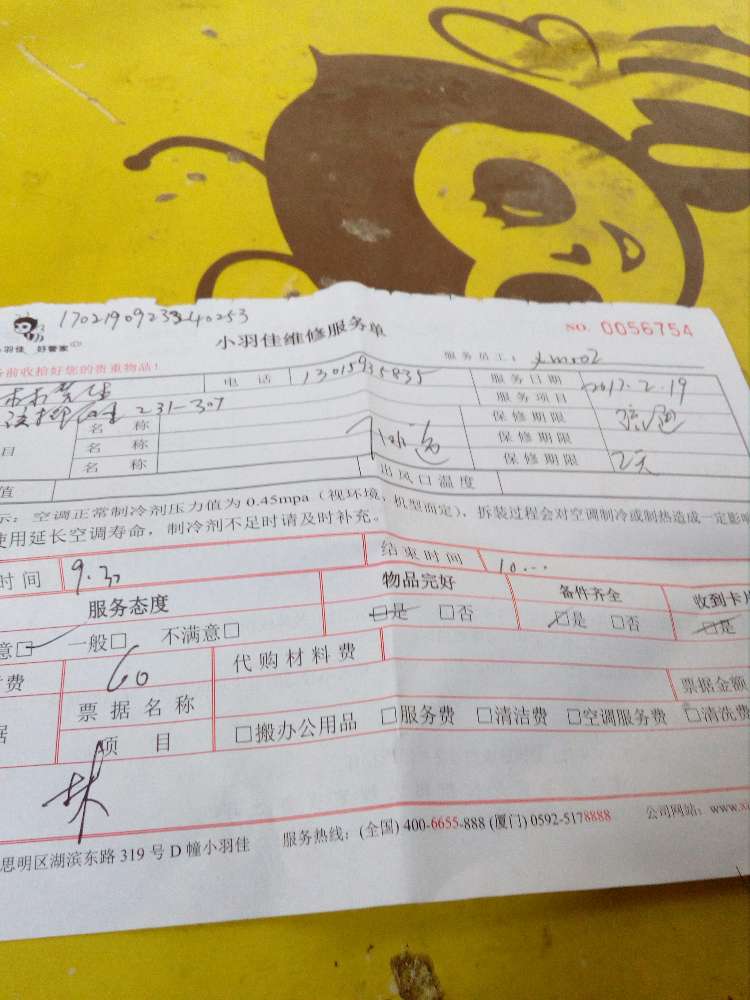 小羽佳 好管家
小羽佳维修服务单
NO. 0056754
务前收拾好您的贵重物品!
服务员工:
电 话 13015935835 服务日期 2017.2.19
231-307 服务项目
名 称 保修期限
目 名 称 保修期限
名 称 保修期限 2天
值 出风口温度
示:空调正常制冷剂压力值为 0.45mpa(视环境,机型而定),拆装过程会对空调制冷或制热造成一定影响
使用延长空调寿命,制冷剂不足时请及时补充。
时间 9.30 结束时间 10...
服务态度 物品完好 备件齐全 收到卡片
意□ 一般□ 不满意□ □是 □否 □是 □否 □是
费 60 代购材料费
据 票据名称 票据金额
项 目 □搬办公用品 □服务费 □清洁费 □空调服务费 □清洗费
林
思明区湖滨东路 319 号 D 幢小羽佳 服务热线:(全国) 400-6655-888 (厦门) 0592-5178888 公司网站:www.x